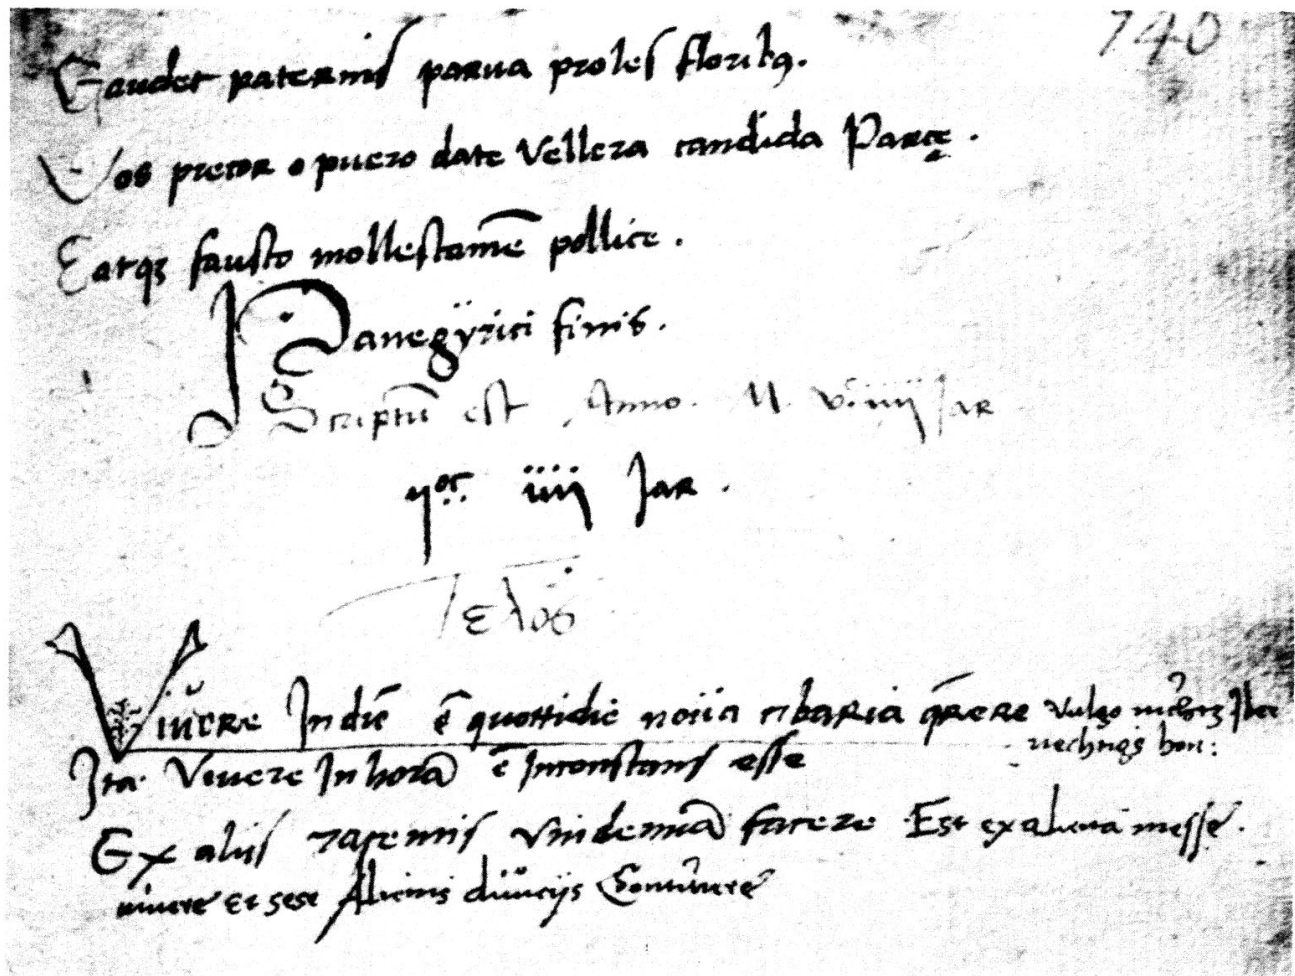 740
Gaudet paternis parua proles floribꝰ.
Vos precor o puero date Vellera candida Parcę.
Eatqꝫ fausto mollestamē pollice.
Panegÿrici finis.
Scriptū est Anno. M. vᶜ. iiij Jar
iiij Jar.
Τελος
Viuere In diē ē quottidie noua cibaria q̄rere Vulgo
hon:
Ita Viuere In horā ē Inconstans esse
Ex alijs racemis vindemiā facere Est ex aliena messe.
viuere Et sese Alienis diuicijs